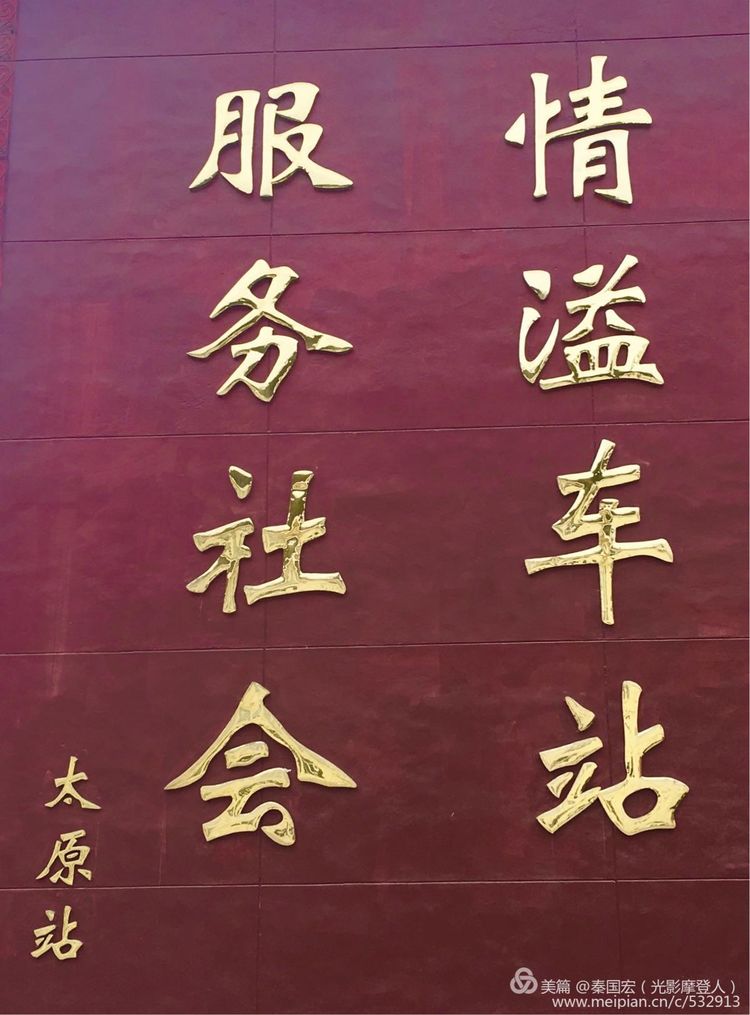 情溢车站
服务社会
太原站
美篇 @秦国宏（光影摩登人）
www.meipian.cn/c/532913